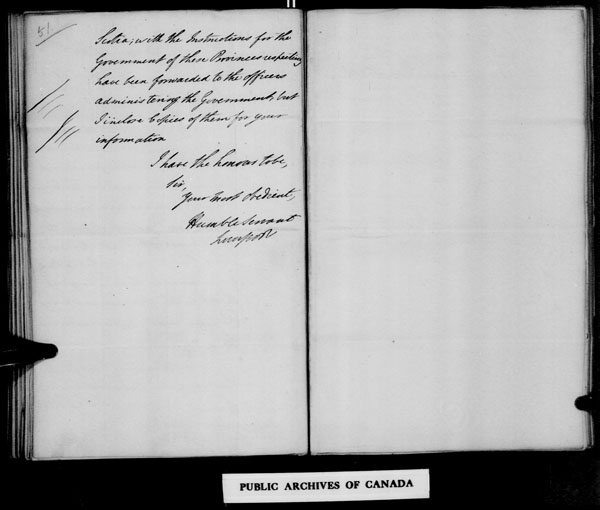 51
Scotia; with the Instructions for the
Government of these Provinces respecting
have been forwarded to the officers
administering the Government, but
I inclose Copies of them for your
information
I have the honour to be,
Sir,
Your most obedient,
Humble Servant
Liverpool
PUBLIC ARCHIVES OF CANADA